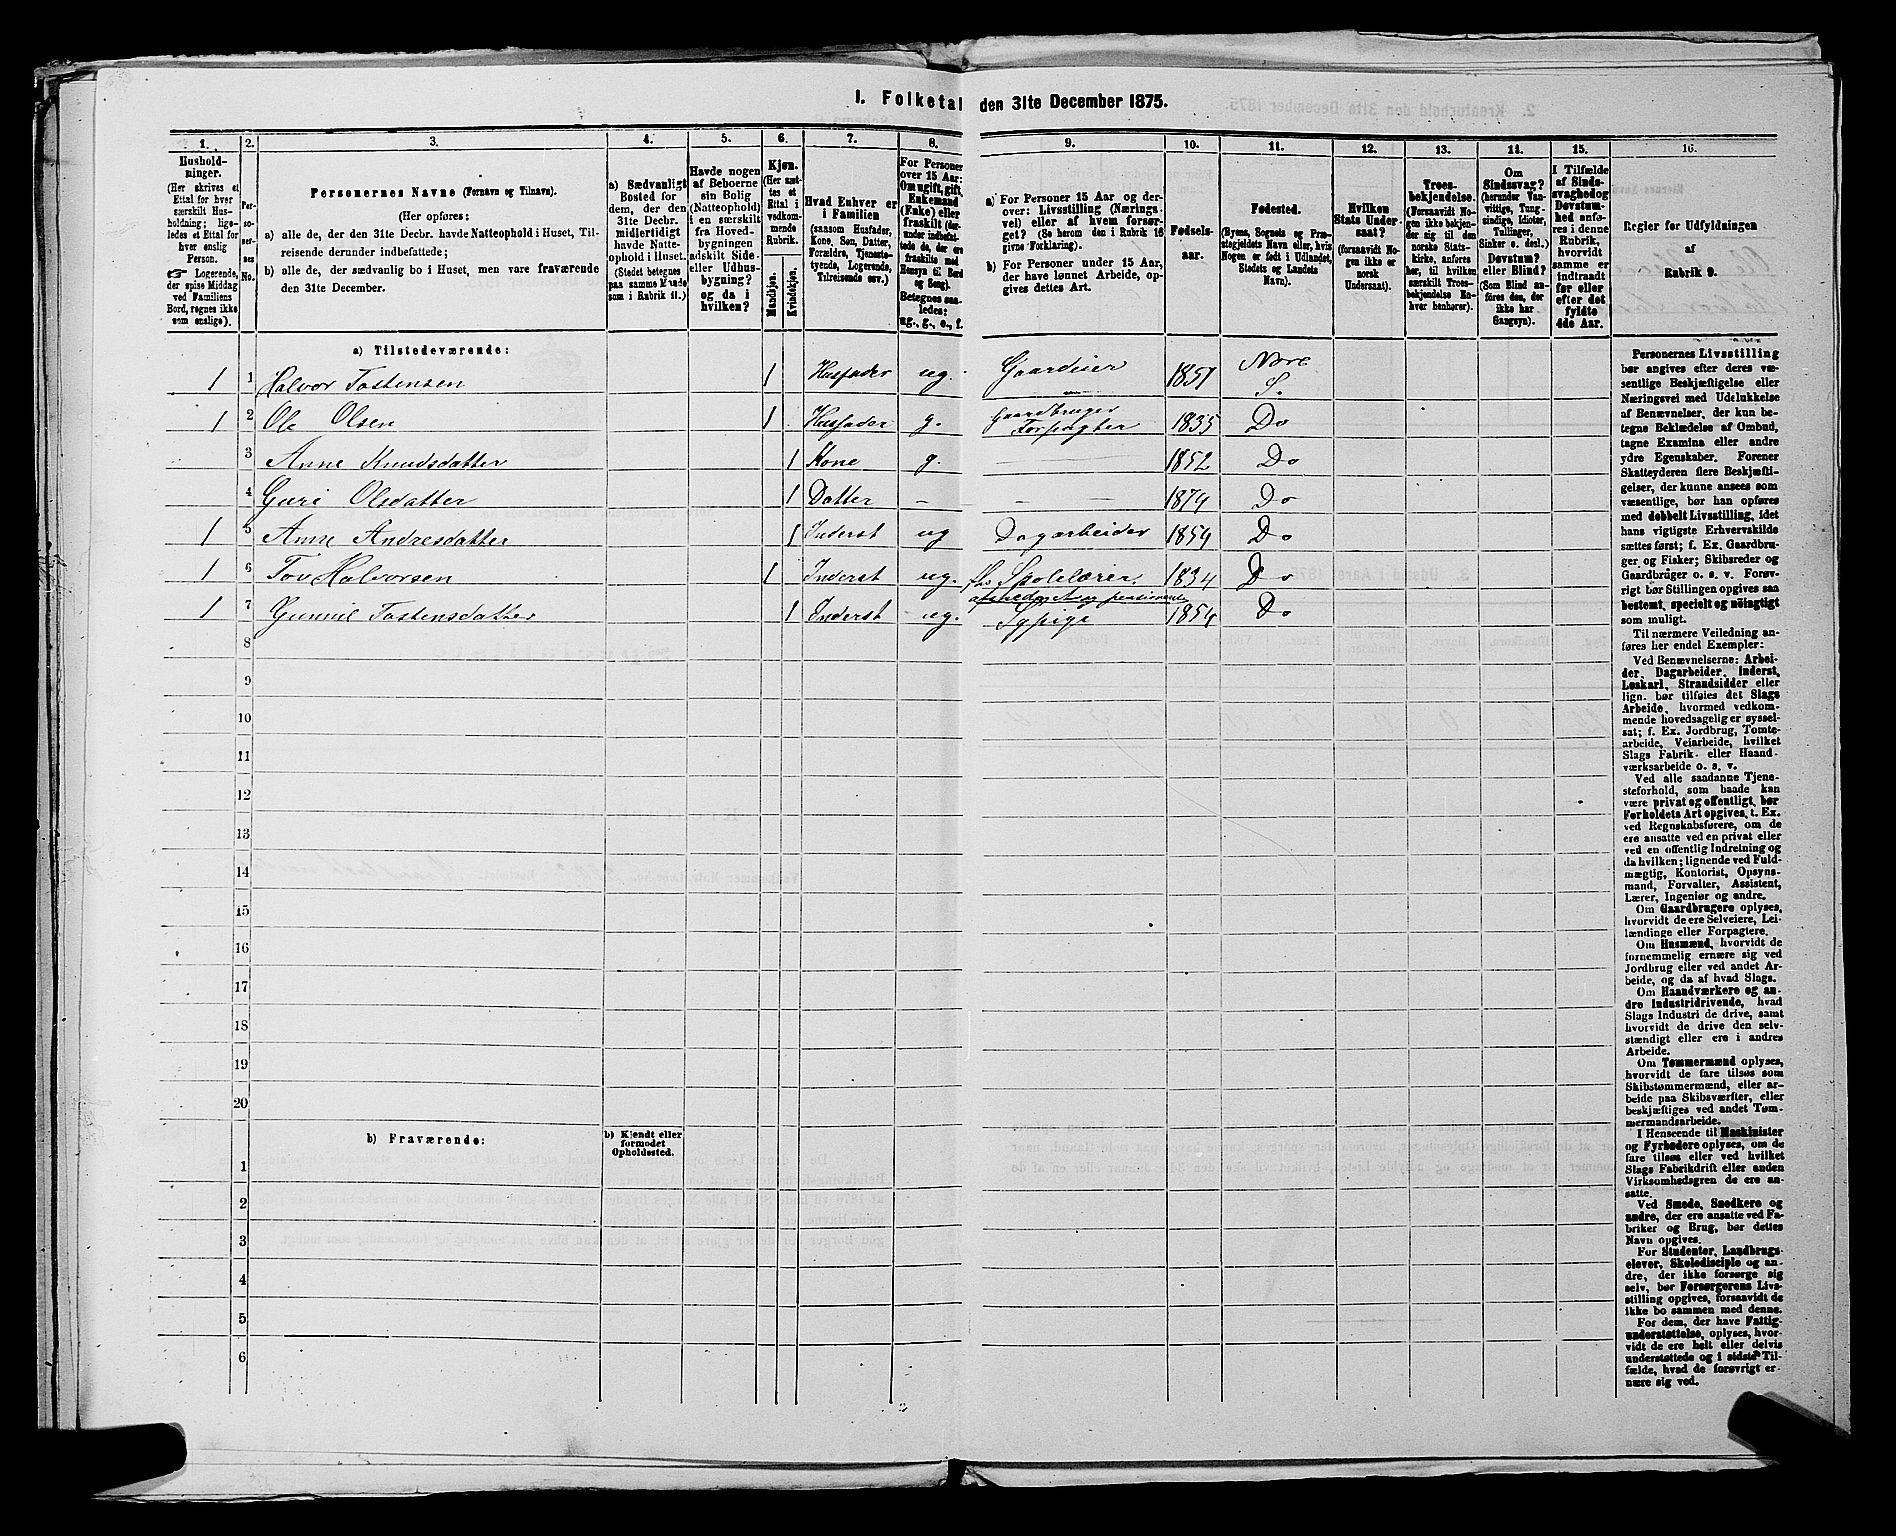 I. Folketal den 31te December 1875.
1. 2. 3. 4. 5. 6. 7. 8. 9. 10. 11. 12. 13. 14. 15. 16.
Hushold-
ninger.
(Her skrives et
Ettal for hver
særskilt Hus-
holdning; lige-
ledes et Ettal for
hver enslig
Person.
☞ Logerende,
der spise Middag
ved Familiens
Bord, regnes ikke
som enslige).
Per-
so-
ner-
nes
No.
Personernes Navne (Fornavn og Tilnavn).
(Her opføres:
a) alle de, der den 31te Decbr. havde Natteophold i Huset, Til-
reisende derunder indbefattede;
b) alle de, der sædvanlig bo i Huset, men vare fraværende
den 31te December.
a) Sædvanligt
Bosted for
dem, der den
31te Decbr.
midlertidigt
havde Natte-
ophold i Huset.
(Stedet betegnes
paa samme Maade
som i Rubrik 11.)
Havde nogen
af Beboerne
sin Bolig
(Natteophold)
i en særskilt
fra Hoved-
bygningen
adskilt Side-
eller Udhus-
bygning?
og da i
hvilken?
Kjøn.
(Her sæt-
tes et
Ettal i
vedkom-
mende
Rubrik.
Mandkjøn.
Kvindekjøn.
Hvad Enhver er
i Familien
(saasom Husfader,
Kone, Søn, Datter,
Forældre, Tjeneste-
tyende, Logerende,
Tilreisende osv.)
For Personer
over 15 Aar:
Om ugift, gift,
Enkemand
(Enke) eller
fraskilt (der-
under indbefat-
tede de, der ere
fraskilte med
Hensyn til Bord
og Seng).
Betegnes saa-
ledes:
ug., g., e., f.
a) For Personer 15 Aar og der-
over: Livsstilling (Nærings-
vei) eller af hvem forsør-
get? (Se herom den i Rubrik 16
givne Forklaring).
b) For Personer under 15 Aar,
der have lønnet Arbeide, op-
gives dettes Art.
Fødsels-
aar.
Fødested.
(Byens, Sognets og Præ-
stegjeldets Navn eller, hvis
Nogen er født i Udlandet,
Stedets og Landets
Navn).
Hvilken
Stats Under-
saat?
(forsaavidt No-
gen ikke er
norsk
Undersaat).
Troes-
bekjendelse.
(Forsaavidt No-
gen ikke bekjen-
der sig til den
norske Stats-
kirke, anføres
her, til hvilken
særskilt Troes-
bekjendelse En-
hver henhører).
Om
Sindssvag?
(herunder Van-
vittige, Tung-
sindige, Idioter,
Tullinger,
Sinker o. desl.)
Døvstum?
eller Blind?
(Som Blind an-
føres den, der
ikke har
Gangsyn).
I Tilfælde
af Sinds-
svaghed og
Døvstum-
hed anfø-
res i denne
Rubrik,
hvorvidt
samme er
indtraadt
før eller
efter det
fyldte
4de Aar.
Regler før Udfyldningen
af
Rubrik 9.
a) Tilstedeværende:
1 1 Halvor Tostensen 1 Husfader ug. Gaardeier 1851 Nore S.
1 2 Ole Olsen 1 Husfader g. Gaardbruger Forpagter 1835 Do
3 Anne Knudsdatter 1 Kone g. — 1852 Do
4 Guri Olsdatter 1 Datter — — — 1874 Do
1 5 Anne Andresdatter 1 Inderst ug Dagarbeider 1854 Do
1 6 Tov Halvorsen 1 Inderst ug. Skolelærer 1834 Do
1 7 Gunnil Tostensdatter 1 Inderst ug. Sypige 1854 Do
8
9
10
11
12
13
14
15
16
17
18
19
20
b) Fraværende:
b) Kjendt eller
formodet
Opholdssted.
1
2
3
4
5
6
Personernes Livsstilling
bør angives efter deres væ-
sentlige Beskjæftigelse eller
Næringsvei med Udelukkelse
af Benævnelser, der kun be-
tegne Beklædelse af Ombud,
tagne Examina eller andre
ydre Egenskaber. Forener
Skatteyderen flere Beskjæfti-
gelser, der kunne ansees som
væsentlige, bør han opføres
med dobbelt Livsstilling, idet
hans vigtigste Erhvervskilde
sættes først; f. Ex. Gaardbru-
ger og Fisker; Skibsreder og
Gaardbruger o. s. v. Forøv-
rigt bør Stillingen opgives saa
bestemt, specielt og nøiagtigt
som muligt.
Til nærmere Veiledning an-
føres her endel Exempler:
Ved Benævnelserne: Arbei-
der, Dagarbeider, Inderst,
Løskarl, Strandsidder eller
lign. bør tilføies det Slags
Arbeide, hvormed vedkom-
mende hovedsagelig er syssel-
sat; f. Ex. Jordbrug, Tomte-
arbeide, Veiarbeide, hvilket
Slags Fabrik- eller Haand-
værksarbeide o. s. v.
Ved alle saadanne Tjene-
steforhold, som baade kan
være privat og offentligt, bør
Forholdets Art opgives, t. Ex.
ved Regnskabsførere, om de
ere ansatte ved en privat eller
ved en offentlig Indretning og
da hvilken; lignende ved Fuld-
mægtig, Kontorist, Opsyns-
mand, Forvalter, Assistent,
Lærer, Ingeniør og andre.
Om Gaardbrugere oplyses,
hvorvidt de ere Selveiere, Lei-
lændinge eller Forpagtere.
Om Husmænd, hvorvidt de
fornemmelig ernære sig ved
Jordbrug eller ved andet Ar-
beide, og da af hvad Slags.
Om Haandværkere og an-
dre Industridrivende, hvad
Slags Industri de drive, samt
hvorvidt de drive den selv-
stændigt eller ere i andres
Arbeide.
Om Tømmermænd oplyses,
hvorvidt de fare tilsøs som
Skibstømmermænd, eller ar-
beide paa Skibsværfter, eller
beskjæftiges ved andet Tøm-
mermandsarbeide.
I Henseende til Maskinister
og Fyrbødere oplyses, om de
fare tilsøs eller ved hvilket
Slags Fabrikdrift eller anden
Virksomhedsgren de ere an-
satte.
Ved Smede, Snedkere og
andre, der ere ansatte ved Fa-
briker og Brug, bør dettes
Navn opgives.
For Studenter, Landbrugs-
elever, Skoledisciple og an-
dre, der ikke forsørge sig
selv, bør Forsørgerens Livs-
stilling opgives, forsaavidt de
ikke bo sammen med denne.
For dem, der have Fattig-
understøttelse, oplyses, hvor-
vidt de ere helt eller delvis
understøttede og i sidste Til-
fælde, hvad de forøvrigt er-
nære sig ved.